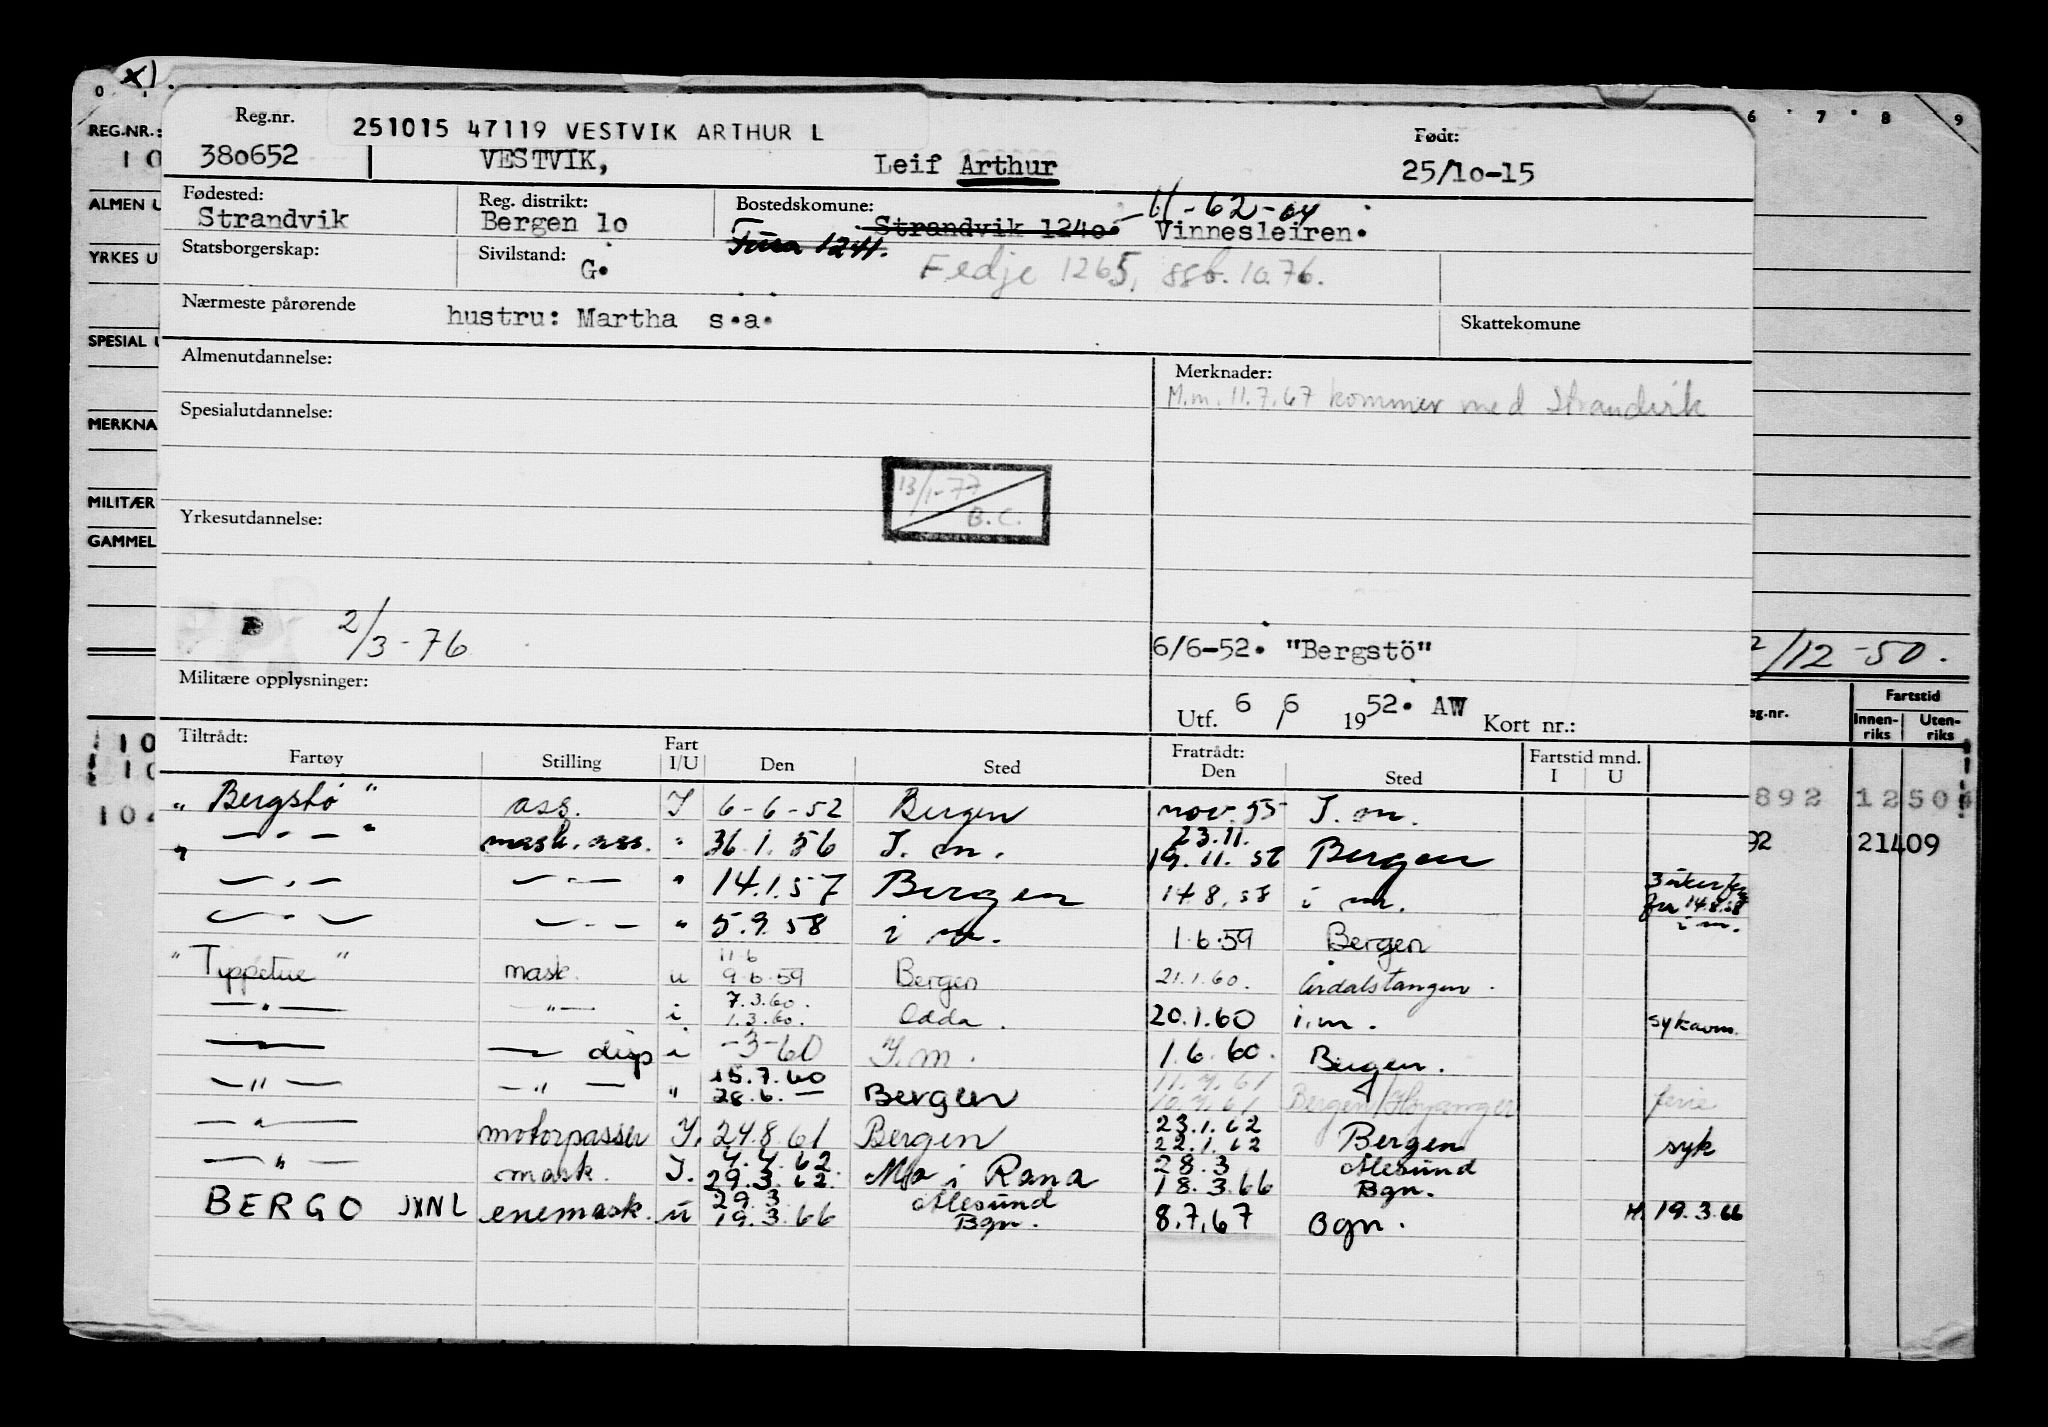 x).
0
6 7 8 9
REG.NR.:
10
ALMEN U
YRKES U
SPECIAL U
MERKNA
MILITÆR
GAMMEL
Reg.nr.
251015 47119 VESTVIK ARTHUR L
Født:
380652 VESTVIK, Leif Arthur 25/10-15
Fødested: Reg. distrikt: Bostedskomune: 11-62-64
Strandvik Bergen 10 Strandvik 1240. Vinnesleiren.
Fusa 1241.
Statsborgerskap: Sivilstand: G. Fedje 1265, ssb. 10.76.
Nærmeste pårørende hustru: Martha s.a. Skattekomune
Almenutdannelse: Merknader:
M.m. 11.7.67 kommer med Strandvik
Spesialutdannelse:
13/1-77
B.C.
Yrkesutdannelse:
2/3-76
6/6-52. "Bergstö"
2/12-50.
Militære opplysninger:
Utf. 6/6 1952. AW Kort nr.:
eg.nr. Fartstid
Innenriks Utenriks
Tiltrådt: Fart Fratrådt: Fartstid mnd.
Fartøy Stilling I/U Den Sted Den Sted I U
"Bergstø" ass. I 6-6-52 Bergen nov. 55 I.m.
892 1250
" — " — " mask. ass. " 36.1.56 I.m. 23.11. 19.11.56 Bergen
92 21409
— " — — " — " 14.1.57 Bergen 14.8.58 i m. 3 uker fra 14.8.58 i m.
— " — — " — " 5.9.58 i m. 1.6.59 Bergen
" " mask. u 11.6 9.6.59 Bergen 21.1.60. Årdalstangen.
— " — — " — i 7.3.60. 1.3.60. Odda. 20.1.60 i.m. sykavm.
— — disp i -3-60 I.m. 1.6.60. Bergen.
— " — — " — " 15.7.60 28.6. — Bergen 11.7.61 10.7.61 Bergen/Høyanger ferie
— " — motorpasser I. 24.8.61 Bergen 23.1.62 22.1.62 Bergen syk
— " — mask. I. 4.4.62. 29.3.62. Mo i Rana 28.3 18.3.66 Ålesund Bgn.
BERGO JXNL enemask. u 29.3 19.3.66 Ålesund Bgn. 8.7.67 Bgn. M. 19.3.66